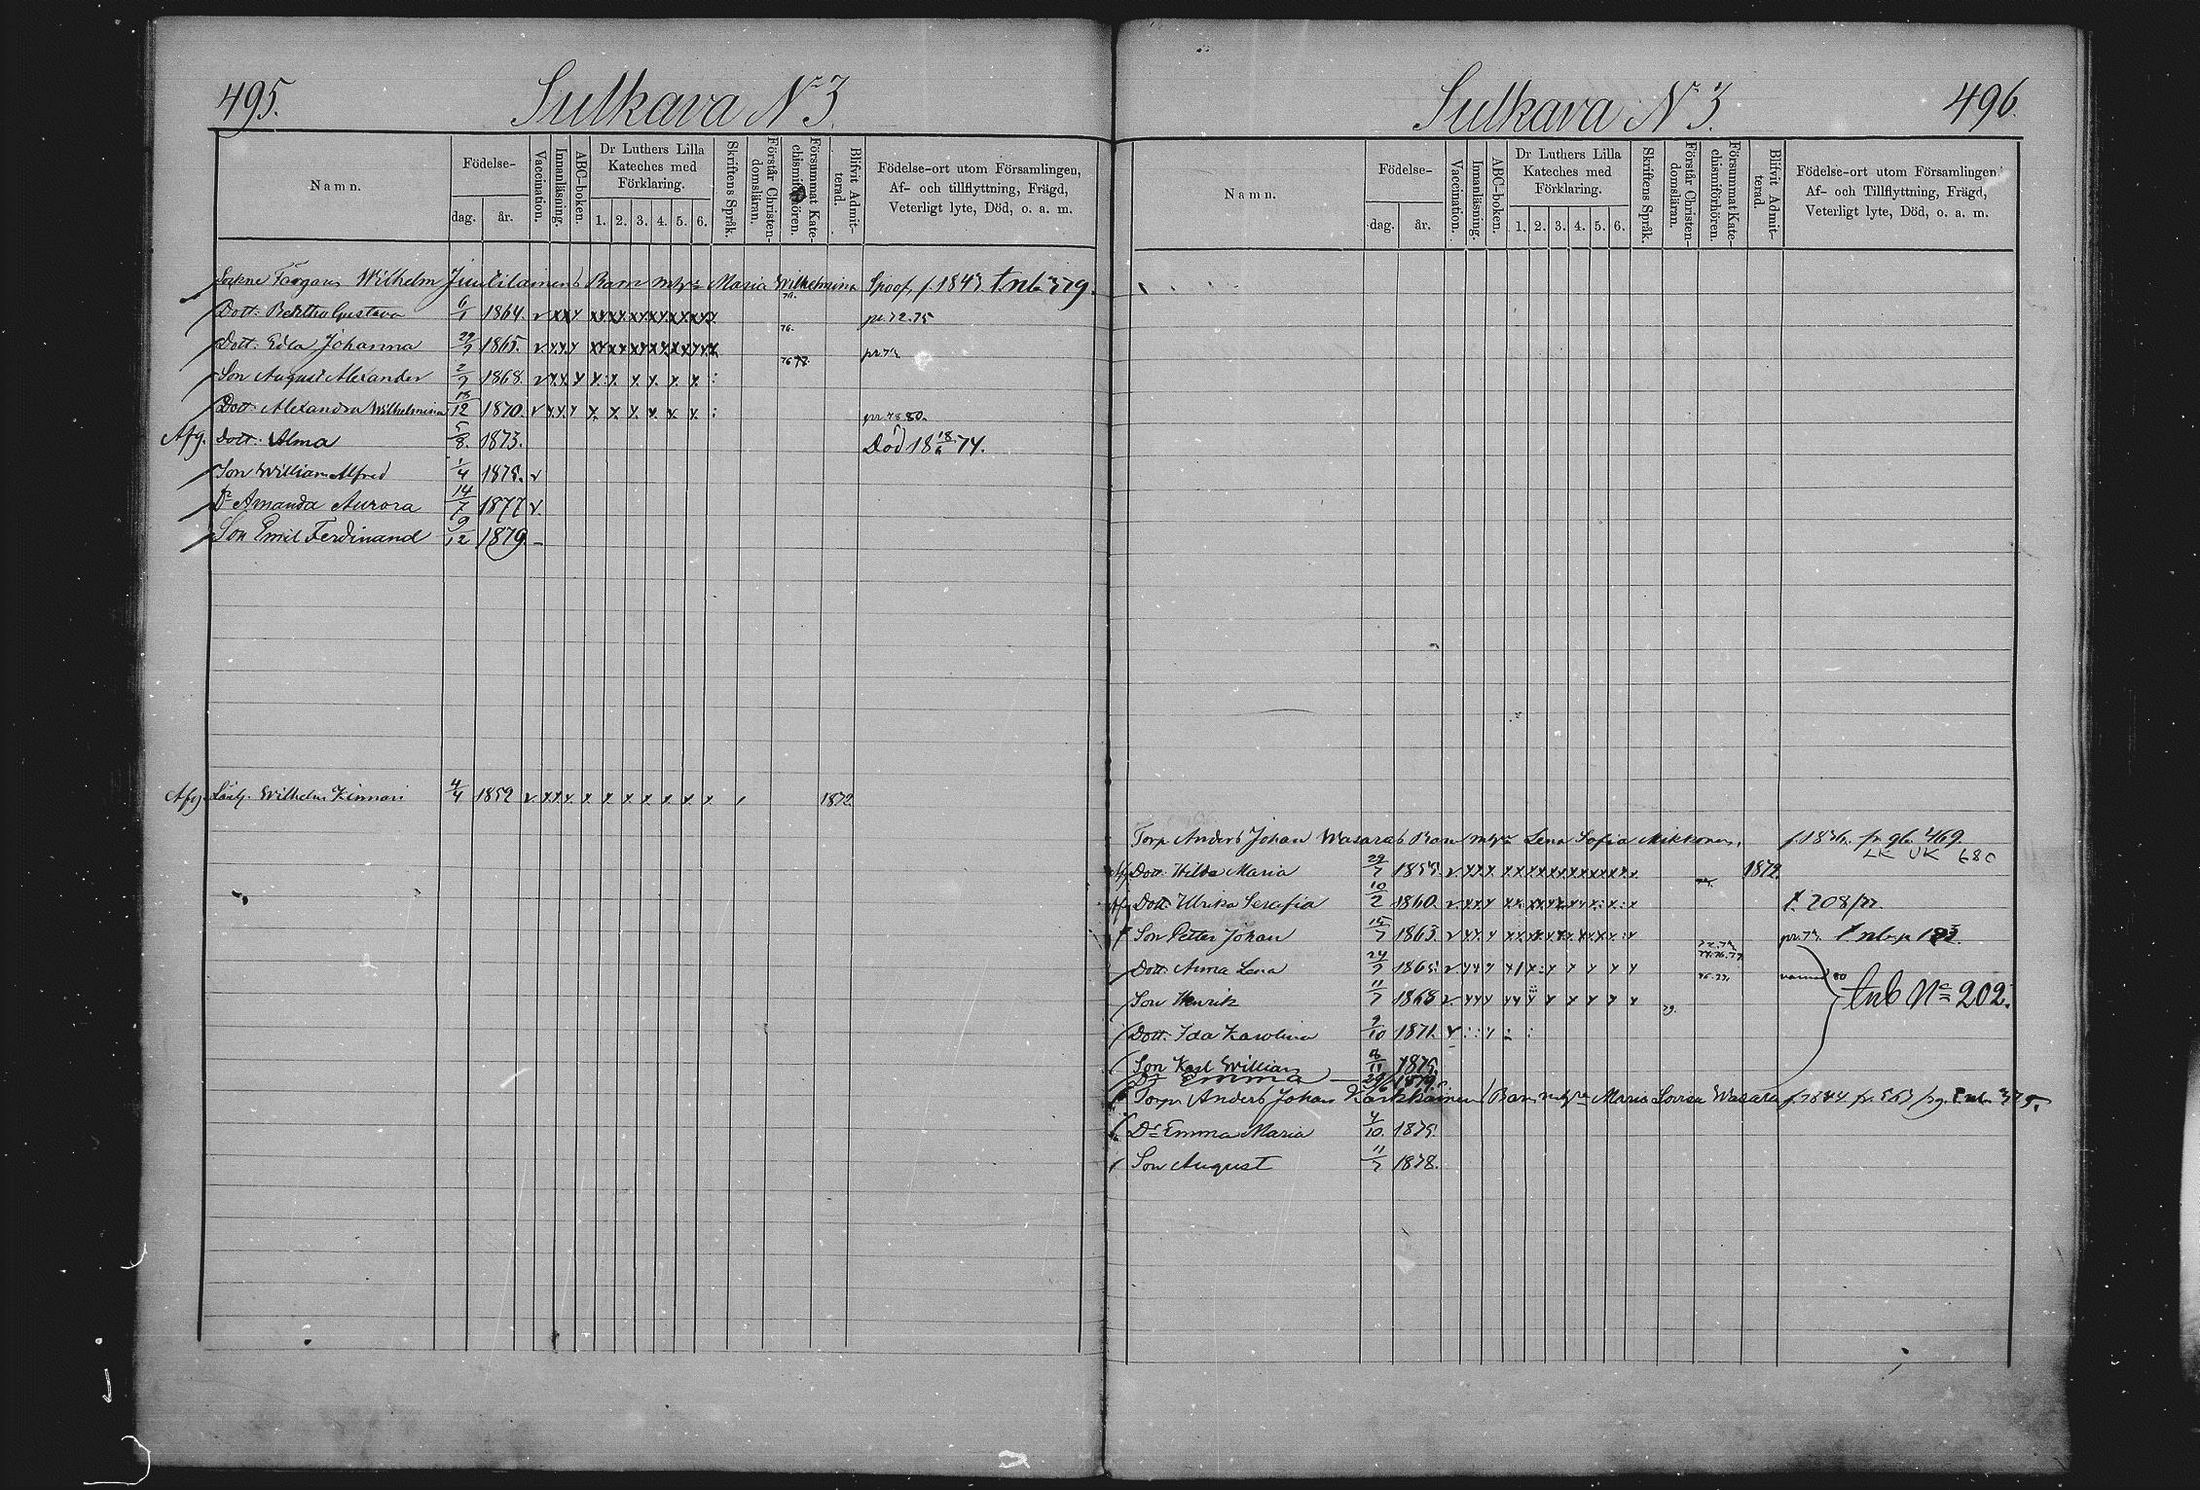 495.
Sulkava No 3.
Namn.
Födelse-
dag.
år.
Vaccination.
Innanläsning.
ABC-boken.
Dr Luthers Lilla
Kateches med
Förklaring.
1. 2. 3. 4. 5. 6.
Skriftens Språk.
Förstår Christen-
domsläran.
Försummat Kate-
chismiförhören.
Blifvit Admit-
terad.
Födelse-ort utom Församlingen,
Af- och tillflyttning, Frägd,
Veterligt lyte, Död, o. a. m.
Sockne Färgaris Wilhelm Juutilainens Barn m. Maria Wilhelmina Spoof, f. 1843. tnb 379.
Dott. Bertha Gustava 6/1 1864. v xxx pr. 72. 75
Dott. Edla Johanna 29/7 1865. v xxx 76. pr. 72
Son August Alexander 2/7 1868. v xxx x x x x x x : 76 77.
Dott. Alexandra Wilhelmina 13/12 1870. v xxx x x x x x x : pr. 78 80.
Afg. Dott. Alma 5/8. 1873. Död 18 18/6 74.
Son William Alfred 1/4 1875. v
Dr Amanda Aurora 14/7 1877 v.
Son Emil Ferdinand 9/12 1879. –
Afg. Wilhelm Kinnari 4/4 1852 v. xxx. x x x x x x x 1872
Sulkava No 3.
496.
Namn.
Födelse-
dag.
år.
Vaccination.
Innanläsning.
ABC-boken.
Dr Luthers Lilla
Kateches med
Förklaring.
1. 2. 3. 4. 5. 6.
Skriftens Språk.
Förstår Christen-
domsläran.
Försummat Kate-
chismiförhören.
Blifvit Admit-
terad.
Födelse-ort utom Församlingen
Af- och Tillflyttning, Frägd,
Veterligt lyte, Död, o. a. m.
Torp. Anders Johan Wasaras Barn m. Lena Sofia Mikkonen, f. 1836. 469.
LK UK 680
Afg Dott. Hilda Maria 29/7 1855. v. xxx 1872.
Afg Dott. Ulrika Serafia 10/2 1860. v. xxx t. 208/77.
Son Petter Johan 15/7 1863. v xx. x pr. 72.
Dott. Anna Lena 24/9 1865. v xxx
Son Henrik 11/7 1868 v xxx tnb No 202.
Dott. Ida Karolina 9/10 1871.
Son Karl William 8/11 1875.
Dr Emma 1879.
Torp. Anders Johan Kärkkäinen Barn m. Maria Lovisa Wasara f. 1844 375.
Dr Emma Maria 4/10. 1875.
Son August 11/7 1878.